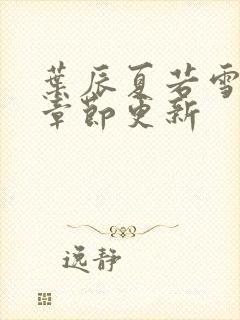 葉辰夏若雪
章節更新
逸靜